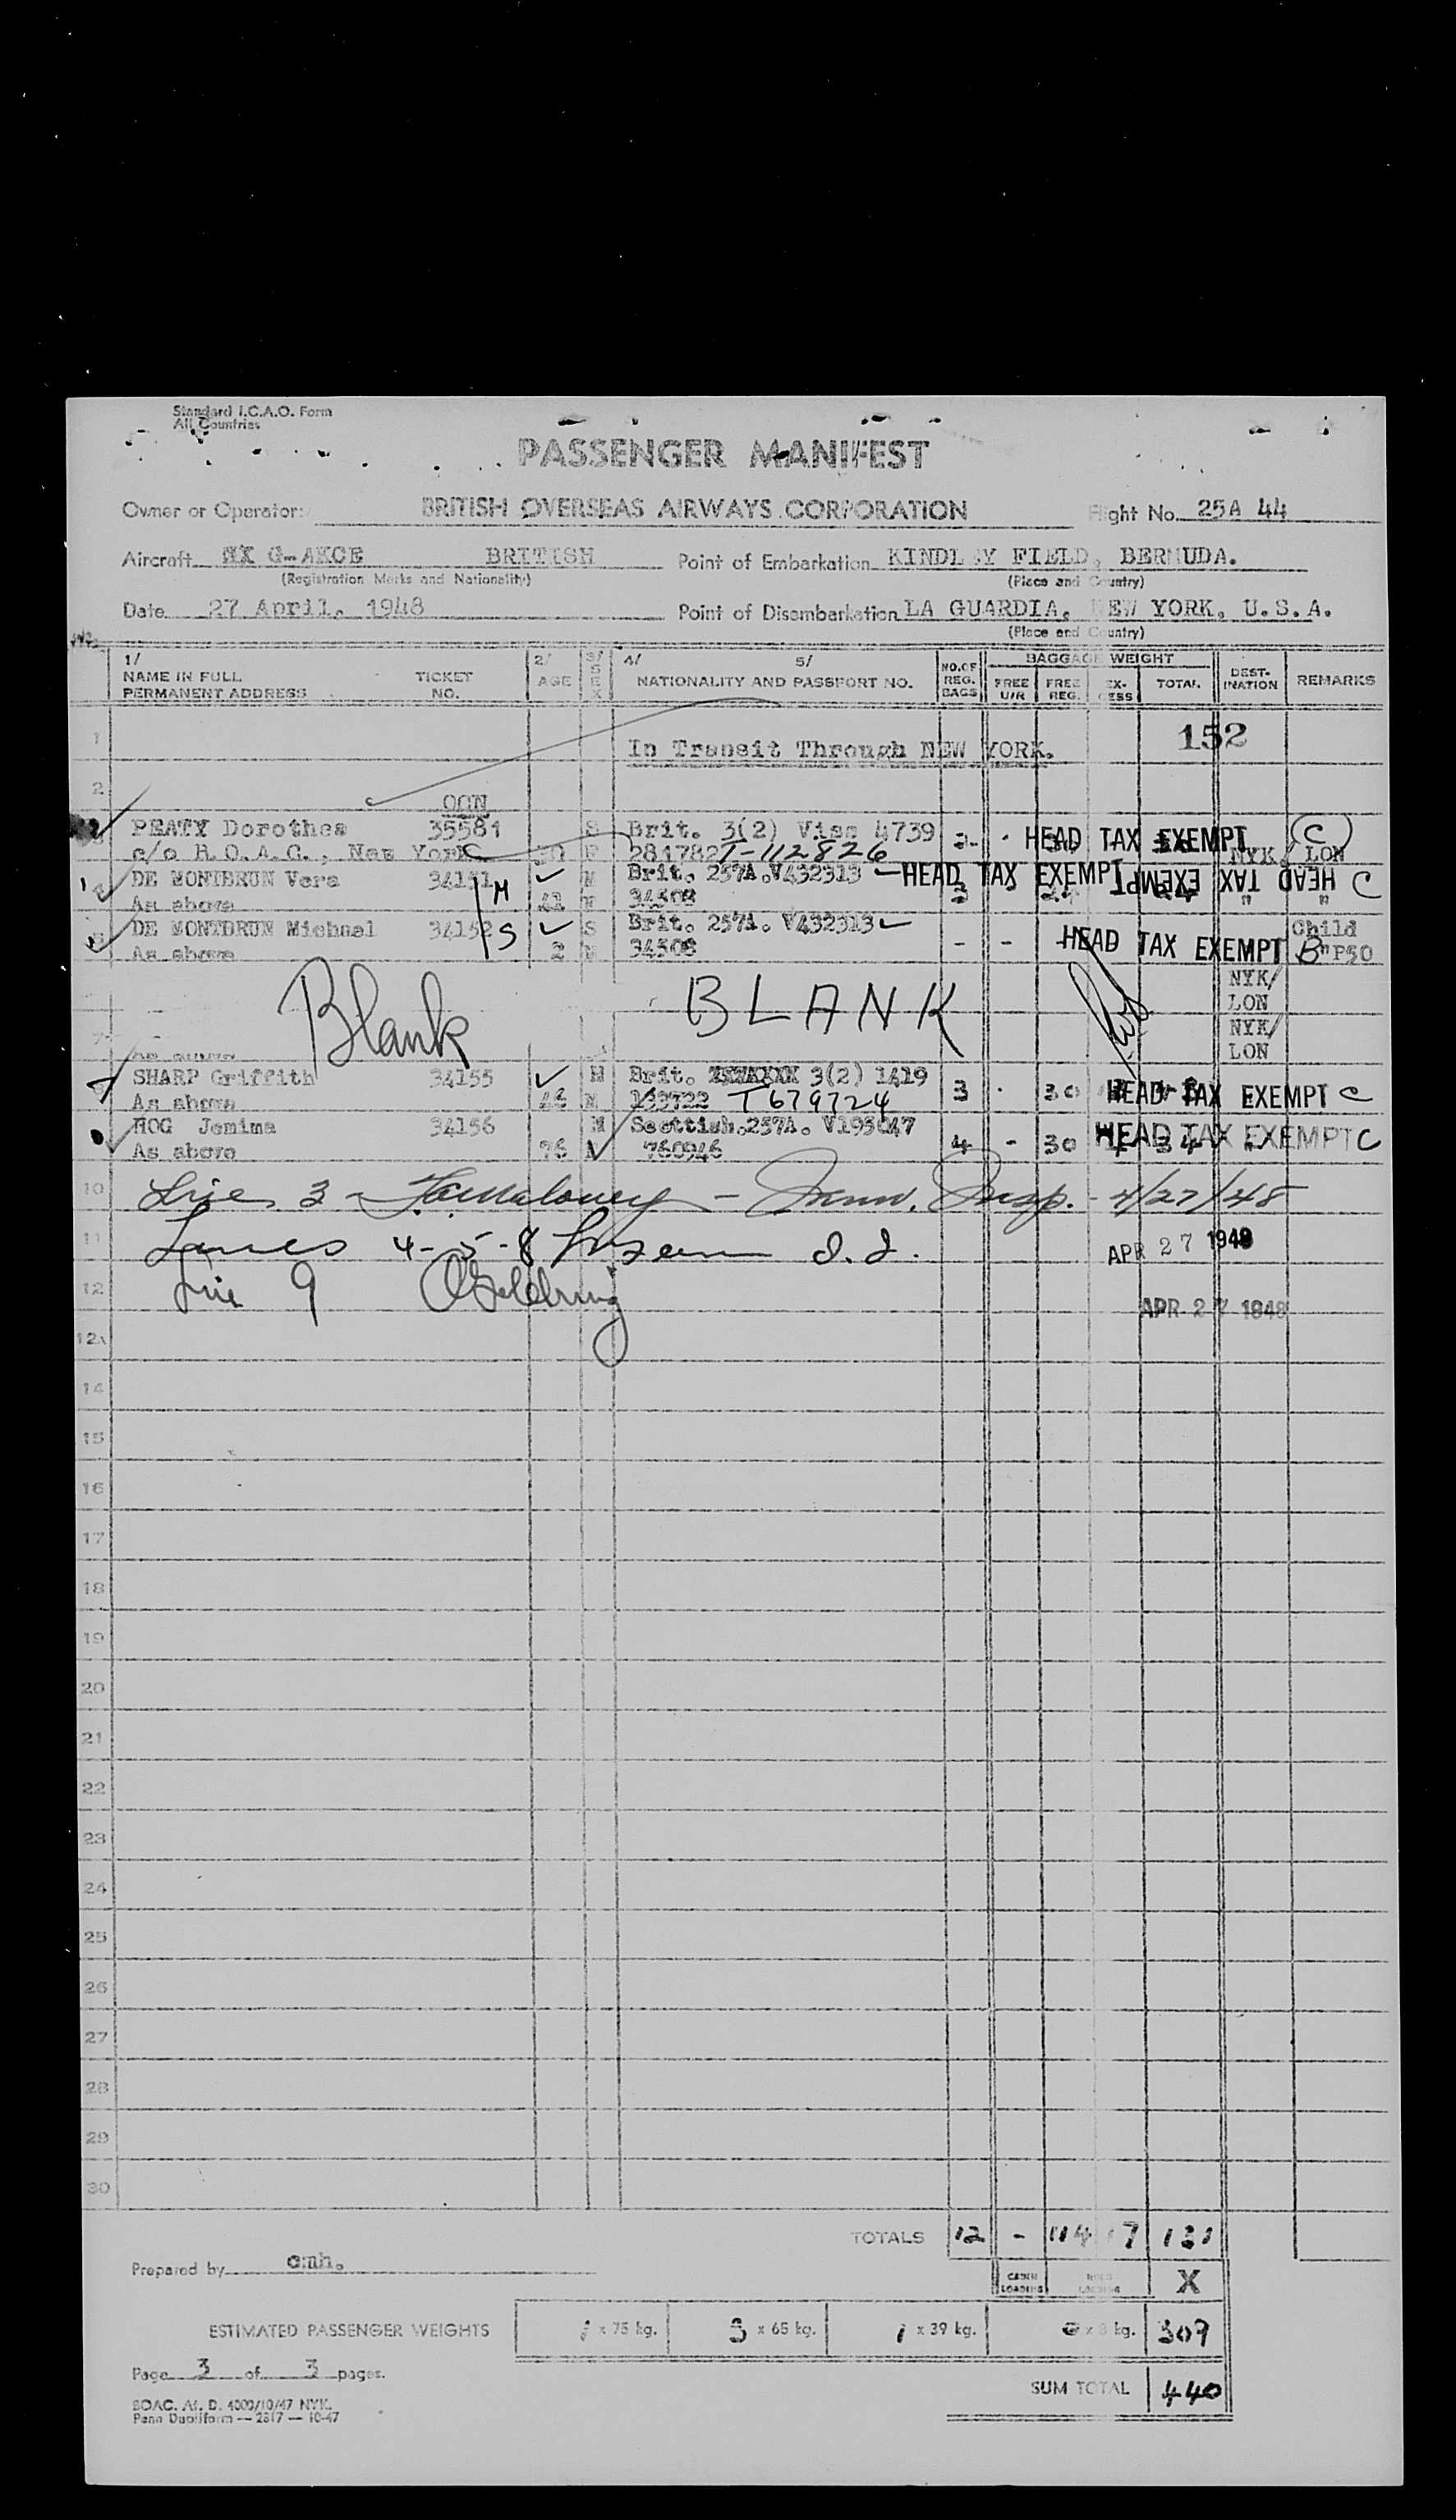 Standard I.C.A.O. Form
All Countries
PASSENGER MANIFEST
Owner or Operator: BRITISH OVERSEAS AIRWAYS CORPORATION Flight No. 25A 44
Aircraft G-AKCE BRITISH Point of Embarkation KINDL Y FIELD, BERMUDA.
(Registration Marks and Nationality) (Place and Country)
Date 27 April, 1948 Point of Disembarkation LA GUARDIA, NEW YORK, U.S.A.
(Place and Country)
1/ NAME IN FULL PERMANENT ADDRESS TICKET NO. 2/ AGE 3/ SEX 4/ 5/ NATIONALITY AND PASSPORT NO. NO. OF REG. BAGS BAGGAGE WEIGHT FREE U/R FREE REG. EX-CESS TOTAL DEST-INATION REMARKS
1 In Transit Through NEW YORK. 152
2
OON
PEATY Dorothea 35581 S Brit. 3(2) Visa 4739 2 - HEAD TAX EXEMPT C
c/o B.O.A.C., New York F 284782 T-112826 NYK/LON
DE MONTBRUN Vera 34151 M M Brit. 257A.V432313 HEAD TAX EXEMPT HEAD TAX EXEMPT C
As above 41 34508 3 " "
DE MONTBRUN Michael 34152 S S Brit. 257A. V432313 Child
As above 2 34508 - - HEAD TAX EXEMPT B P50
NYK/
Blank BLANK LON
7 NYK/
As above LON
SHARP Griffith 34155 M Brit. 3(2) 1419
As above 46 M 133722 T679724 3 - 30 HEAD TAX EXEMPT C
HOG Jemima 34156 Scottish.257A. V193047
As above 76 760946 4 - 30 4 34 HEAD TAX EXEMPT C
10 Line 3 - Maloney - Imm. Insp. - 4/27/48
11 Lines 4-5-8 APR 27 1948
12 Line 9 APR 27 1948
12A
14
15
16
17
18
19
20
21
22
23
24
25
26
27
28
29
30
TOTALS 12 - 114 17 131
Prepared by omh.
CABIN LOADING HOLD LOADING X
ESTIMATED PASSENGER WEIGHTS 1 x 75 kg. 3 x 65 kg. 1 x 39 kg. x 8 kg. 309
Page 3 of 3 pages.
SUM TOTAL 440
BOAC. Af. D. 4000/10/47 NYK.
Penn Duptiform — 2817 — 10-47